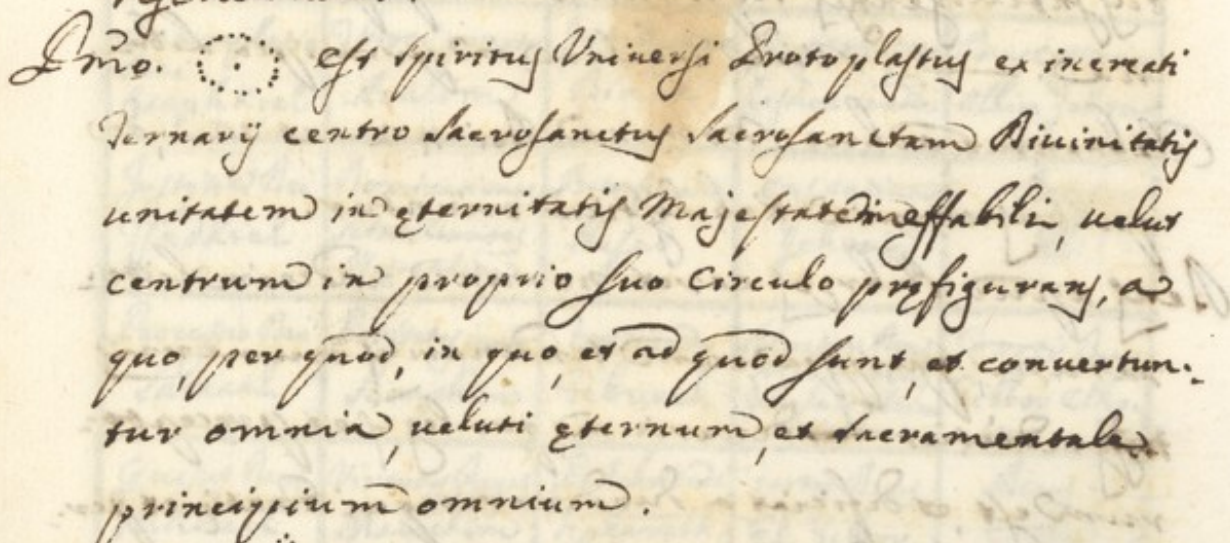 Imo. est spiritus Universi Protoplastus ex increati
Ternarij centro Sacrosanctus Sacrosanctam Divinitatis
unitatem in ęternitatis Majestate ineffabili, velut
centrum in proprio suo Circulo pręfigurans, a
quo, per quod, in quo, et ad quod sunt, et convertun-
tur omnia, veluti ęternum, et sacramentale
principium omnium.